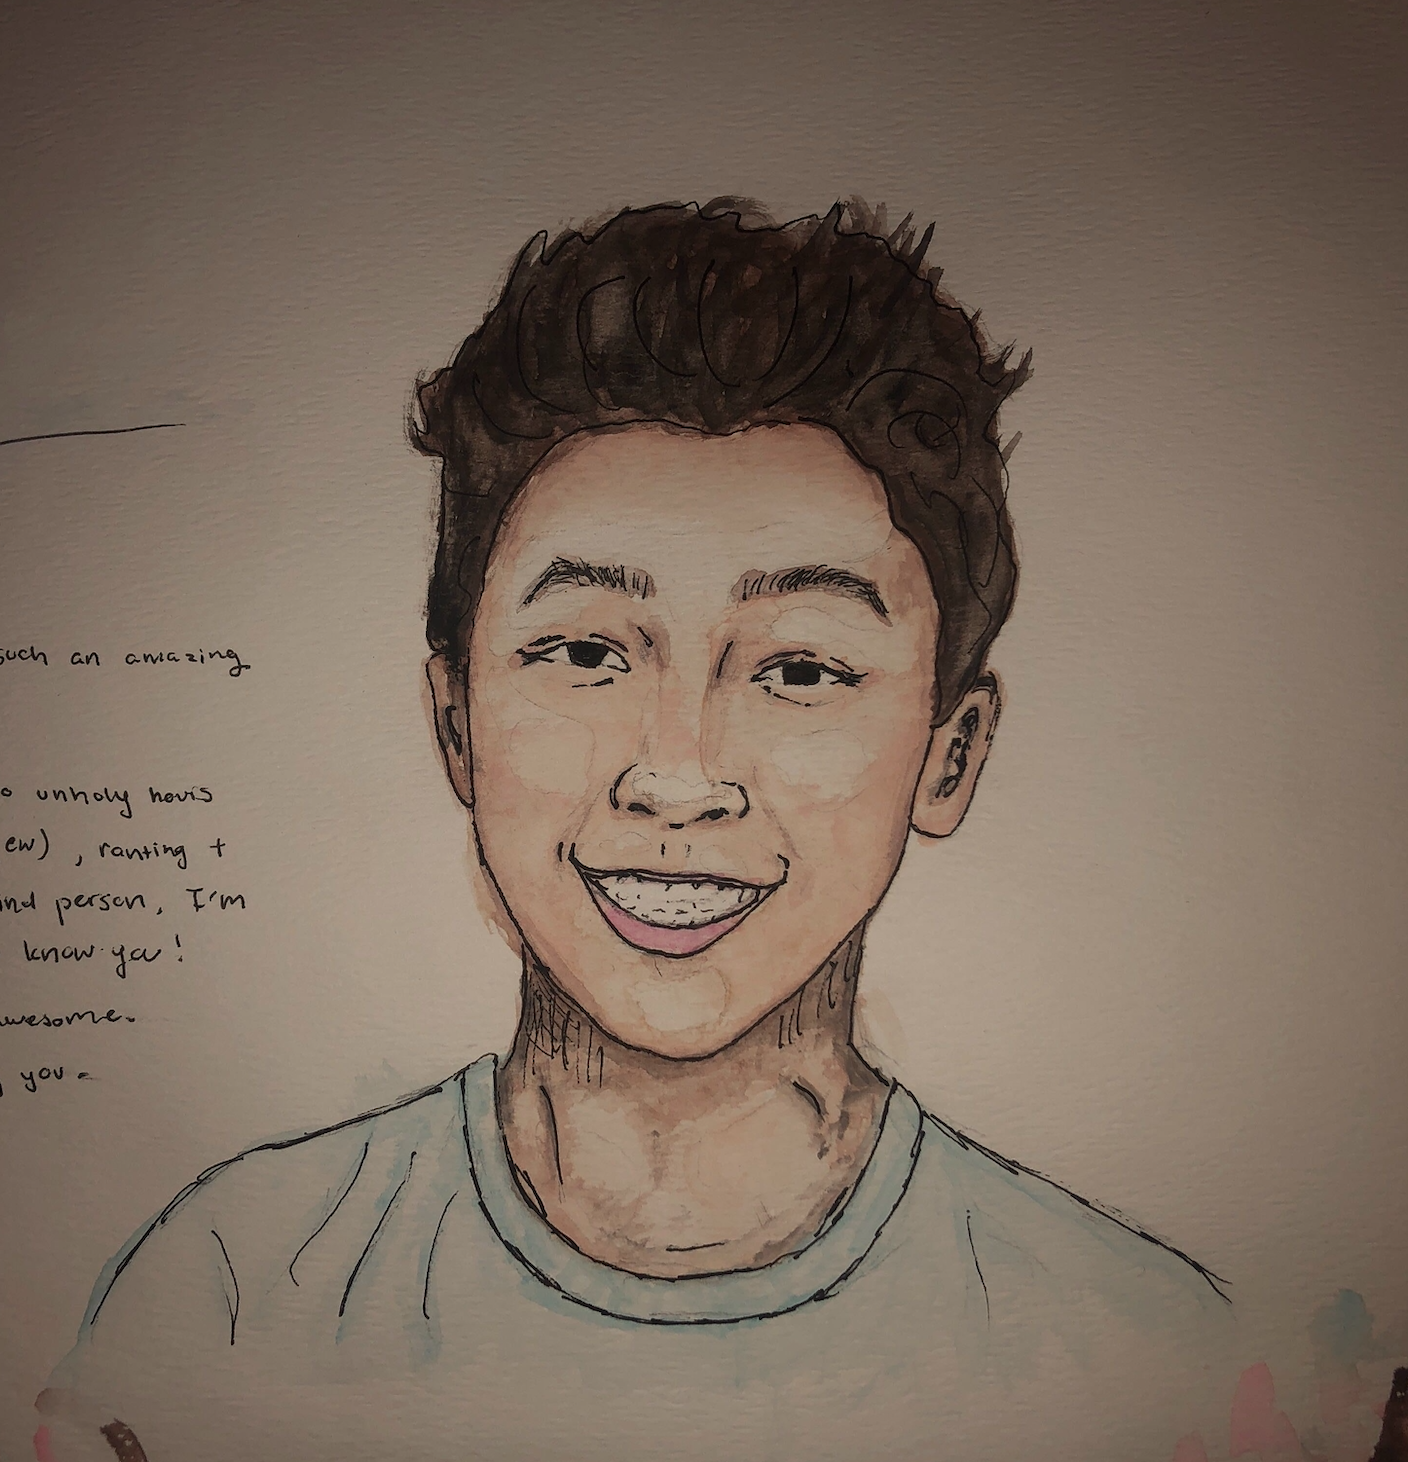 such an amazing
unholy hours
ew) , ranting +
person, I'm
know ya !
awesome.
you -